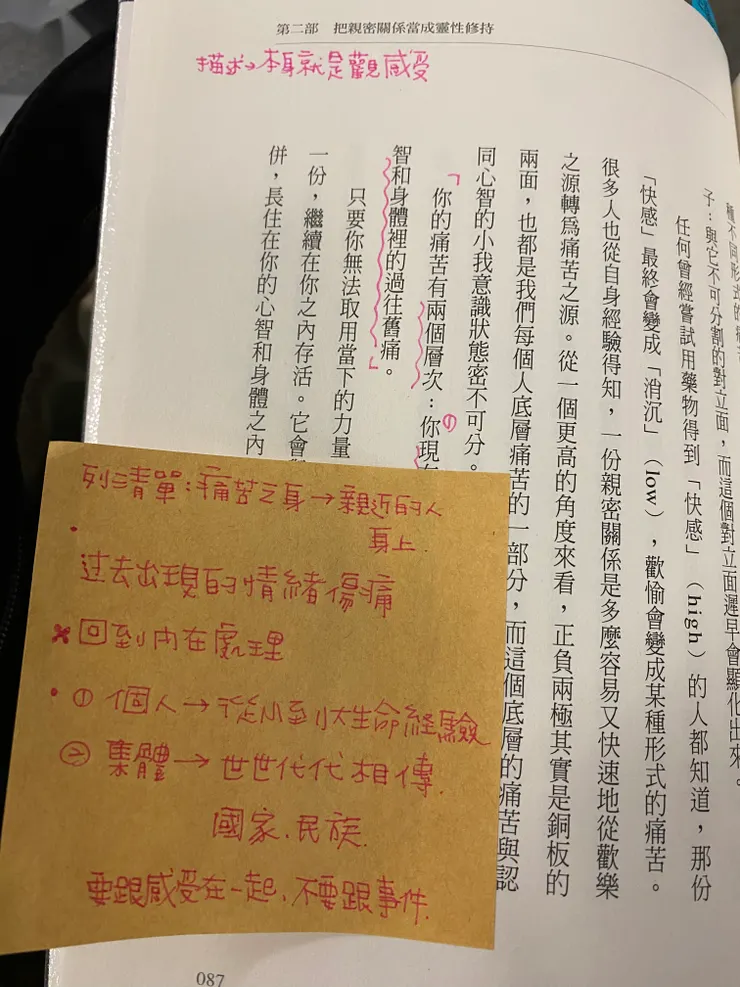 第二部　把親密關係當成靈性修持
描述→本身就是觀感受
種不同形式的
子：與它不可分割的對立面，而這個對立面遲早會顯化出來。
任何曾經嘗試用藥物得到「快感」（high）的人都知道，那份
「快感」最終會變成「消沉」（low），歡愉會變成某種形式的痛苦。
很多人也從自身經驗得知，一份親密關係是多麼容易又快速地從歡樂
之源轉爲痛苦之源。從一個更高的角度來看，正負兩極其實是銅板的
兩面，也都是我們每個人底層痛苦的一部分，而這個底層的痛苦與認
同心智的小我意識狀態密不可分。
「你的痛苦有兩個層次：①你現
智和身體裡的過往舊痛。」
只要你無法取用當下的力量
一份，繼續在你之內存活。它會
併，長住在你的心智和身體之內
列清單：痛苦之身→親近的人
身上.
过去出現的情緒傷痛
回到內在處理
① 個人→從小到大生命経驗
② 集體→世世代代相傳
國家、民族.
要跟感受在一起、不要跟事件.
087